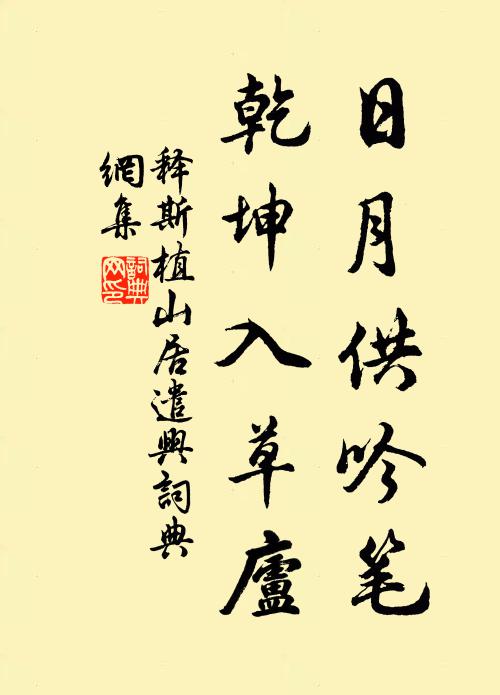 日月供吟笔
乾坤入草廬
释斯植山居遣興詞典
網集
詞典網印